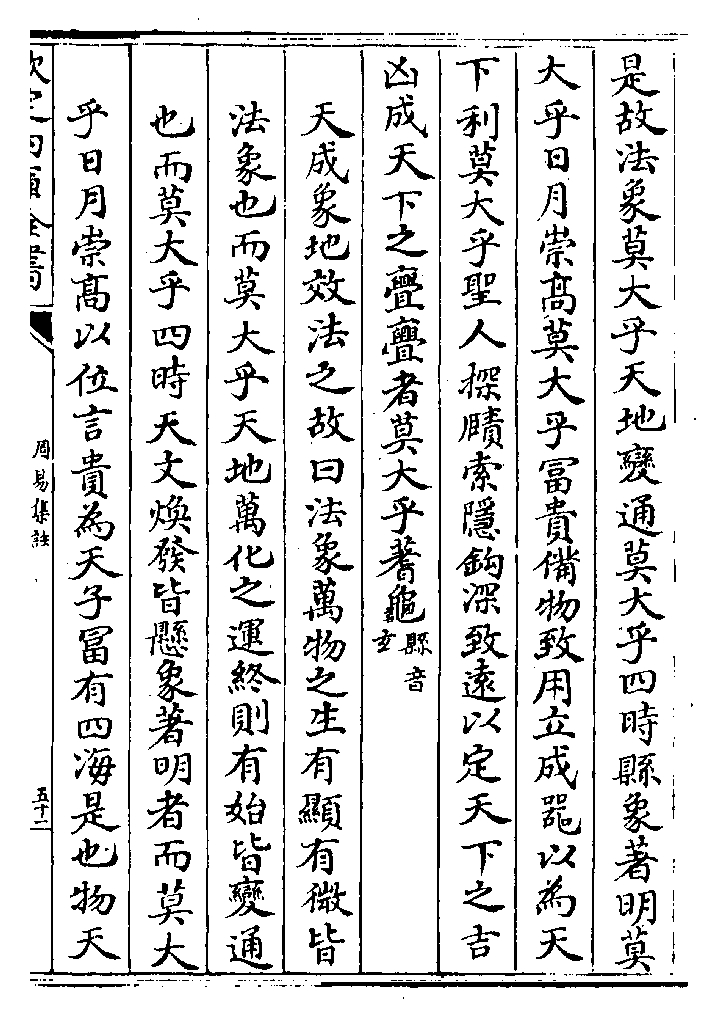 是故法象莫大乎天地變通莫大乎四時縣象著明莫
大乎日月崇髙莫大乎冨貴備物致用立成器以為天
下利莫大乎聖人探賾索隱鈎深致遠以定天下之吉
凶成天下之亹亹者莫大乎蓍龜縣音
玄
天成象地效法之故曰法象萬物之生有顯有微皆
法象也而莫大乎天地萬化之運終則有始皆變通
也而莫大乎四時天文煥發皆懸象著明者而莫大
乎日月崇髙以位言貴為天子冨有四海是也物天
欽定四庫全書
周易集註
五十二